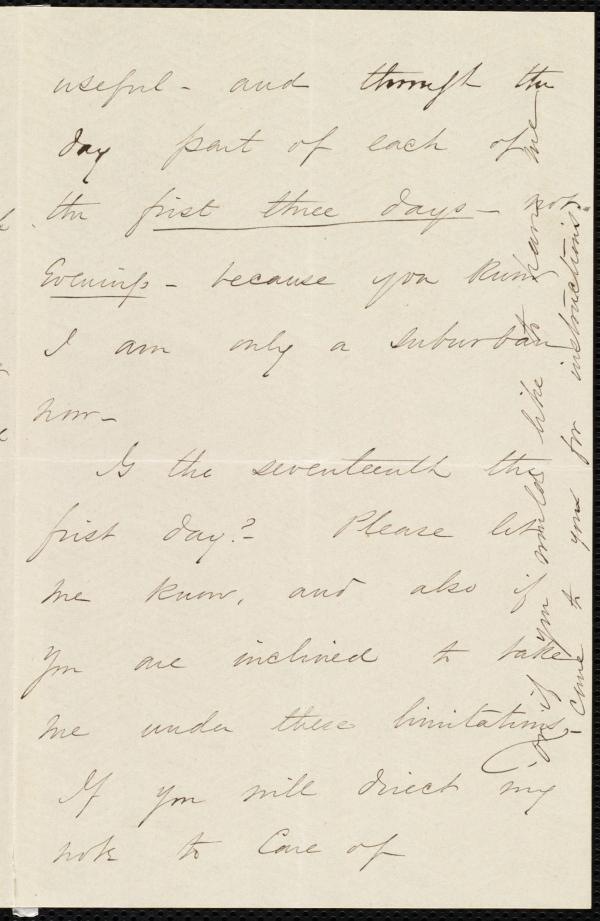 useful - and through the
day part of each of
the first three days - not
Evenings - because you know
I am only a suburban
now -
Is the seventeenth the
first day? - Please let
me know, and also if
you are inclined to take
me under these limitations -
If you will direct my
note to Care of
(or if you would like to have me
come to you for instructions.